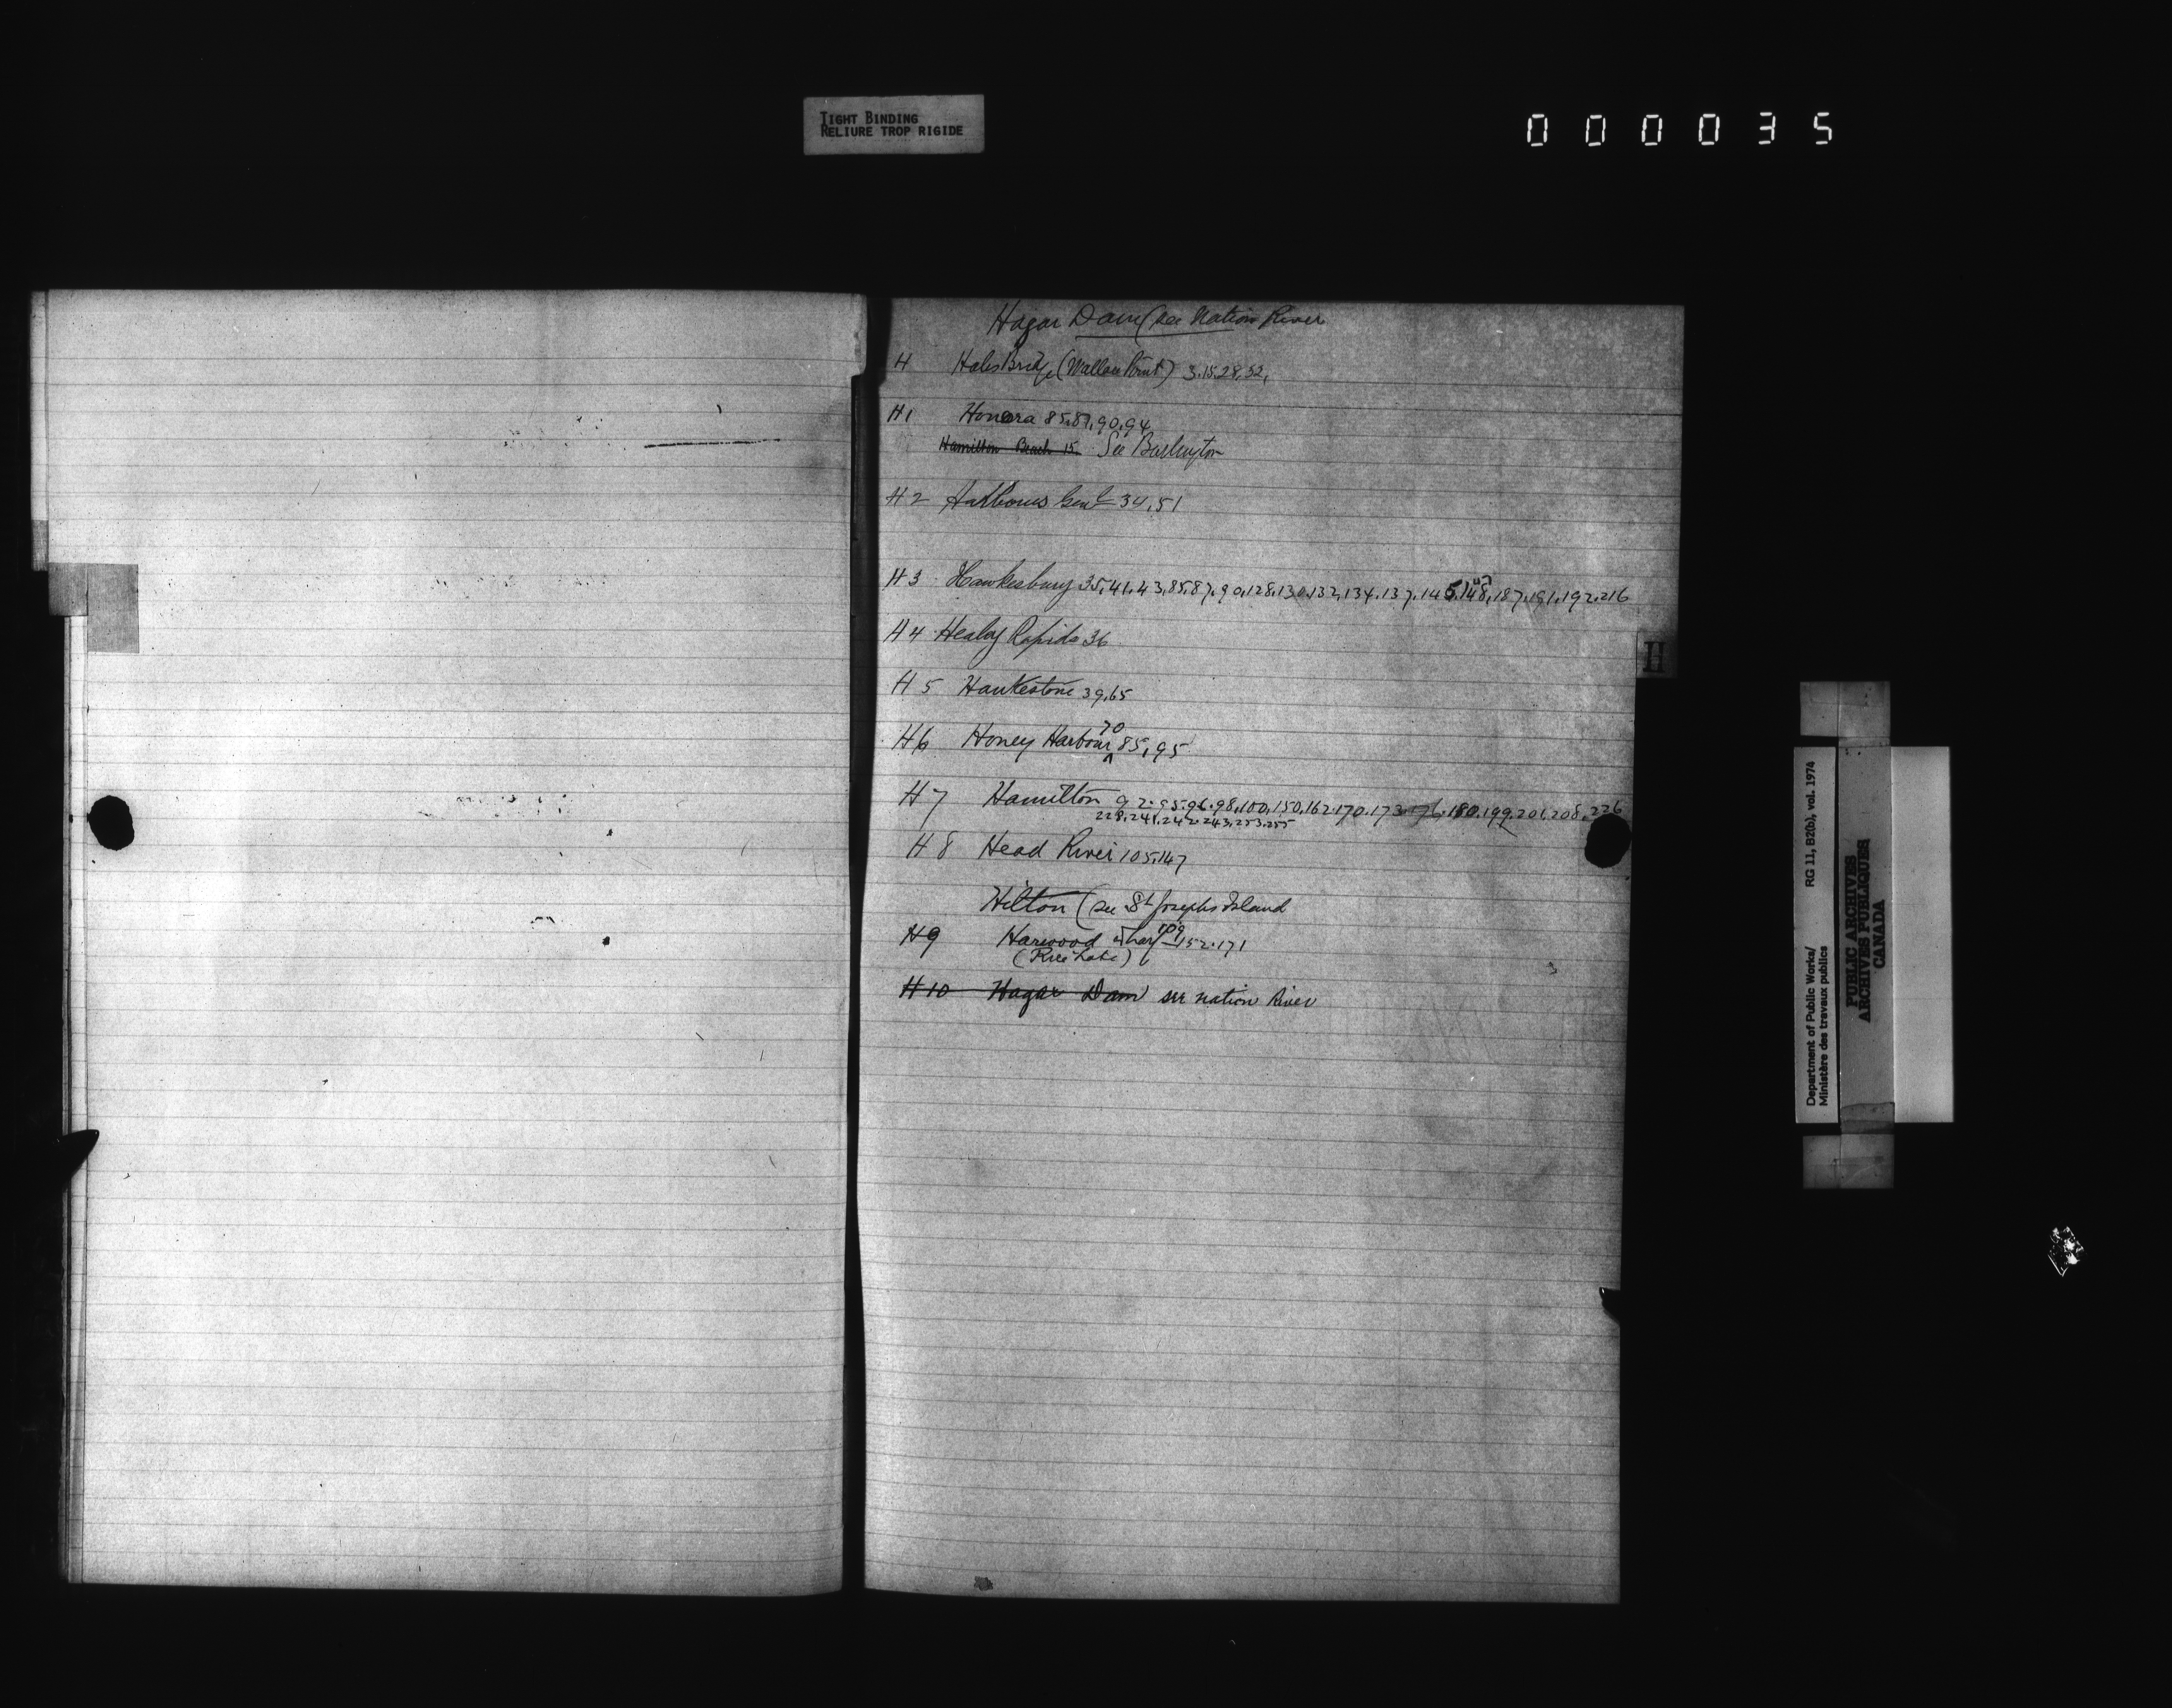 TIGHT BINDING
RELIURE TROP RIGIDE
000035
Hagar Dam (see Nation River
H Hales Bridge (Wallace Point) 3.15.28,32,
H1 Honora 85.87,90,94
Hamilton Beach 15. See Burlington
H2 Harbours Genl 34,51
H3 Hawkesbury 35,41.43,85.87.90,128,130.132,134.137.145.147.148,187.191.192.216
H4 Healey Rapids 36
H5 Hawkestone 39,65
H6 Honey Harbour 70 85,95
H7 Hamilton 92.95.96.98,100,150,162.170.173.176.180.199.201.208.226
228.241.242.243.253.255
H8 Head River 105.147
Hilton (see St Josephs Island
H9 Harwood wharf 109 152.171
(Rice Lake)
H10 Hagar Dam see nation River
H
Department of Public Works/ RG 11, B2(b), vol. 1974
Ministère des travaux publics
PUBLIC ARCHIVES
ARCHIVES PUBLIQUES
CANADA